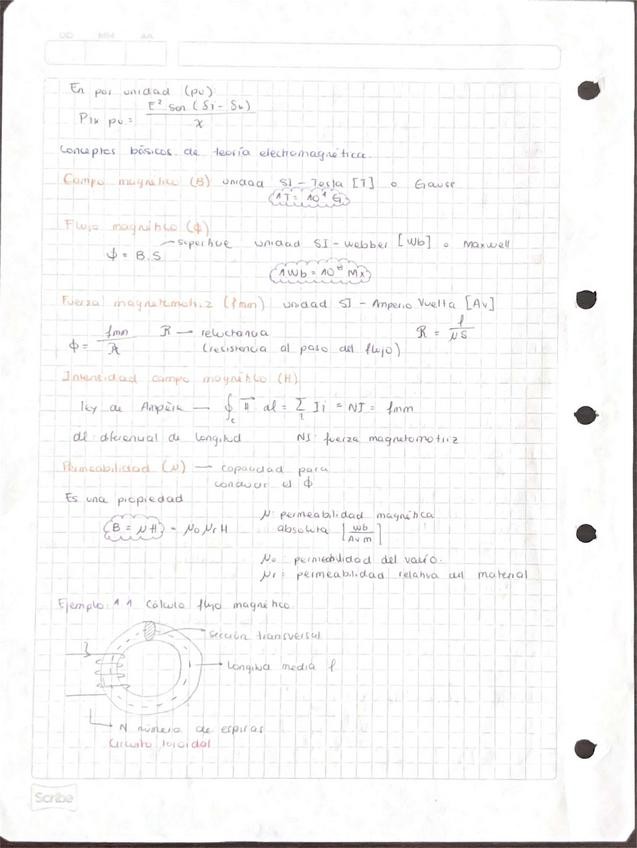 DD MM AA
En por unidad (pu):
P1x pu = E² Sen (δi - δk) / x
Conceptos básicos de teoría electromagnética.
Campo magnético (B) unidad SI - Tesla [T] o Gauss
1T = 10⁴ G
Flujo magnético (ϕ)
ϕ = B.S superficie unidad SI - webber [Wb] o Maxwell
1Wb = 10⁸ Mx
Fuerza magnetomotriz (fmm) unidad SI - Amperio Vuelta [Av]
ϕ = fmm / R R → reluctancia R = l / μS
(resistencia al paso del flujo)
Intensidad campo magnético (H)
ley de Ampère — ∮c H dl = Σi Ii = NI = fmm
dl: diferencial de longitud NI: fuerza magnetomotriz
Permeabilidad (μ) → capacidad para
conducir el ϕ
Es una propiedad
B = μH = μo μr H μ: permeabilidad magnética
absoluta [Wb / Av m]
μo: permeabilidad del vacío.
μr: permeabilidad relativa del material
Ejemplo: 1.1 Cálculo flujo magnético.
sección transversal
I
Longitud media l
N número de espiras
Circuito toroidal
Scribe